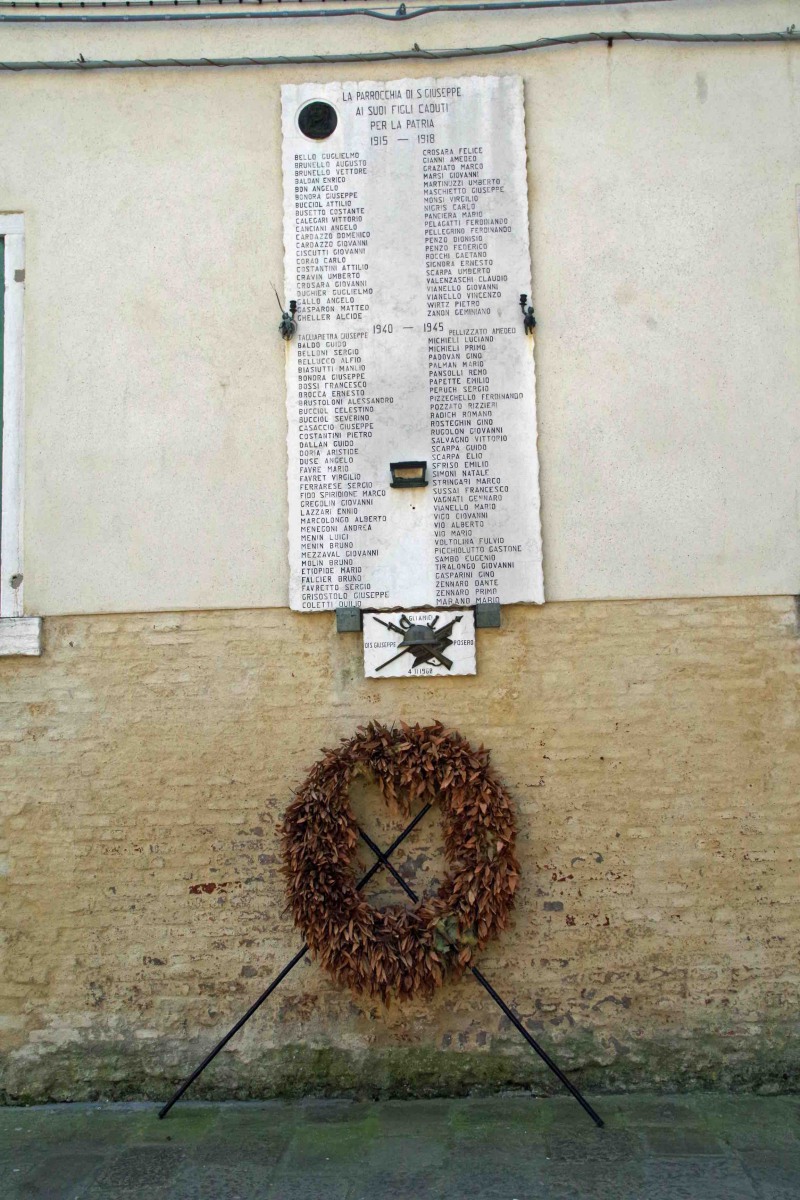 LA PARROCCHIA DI S. GIUSEPPE
AI SUOI FIGLI CADUTI
PER LA PATRIA
1915 — 1918
BELLO GUGLIELMO
BRUNELLO AUGUSTO
BRUNELLO VETTORE
BALDAN ENRICO
BON ANGELO
BONORA GIUSEPPE
BUCCIOL ATTILIO
BUSETTO COSTANTE
CALEGARI VITTORIO
CANCIANI ANGELO
CARDAZZO DOMENICO
CARDAZZO GIOVANNI
CISCUTTI GIOVANNI
CORAO CARLO
COSTANTINI ATTILIO
CRAVIN UMBERTO
CROSARA GIOVANNI
DUGHIER GUGLIELMO
GALLO ANGELO
GASPARON MATTEO
GHELLER ALCIDE
CROSARA FELICE
GIANNI AMEDEO
GRAZIATO MARCO
MARSI GIOVANNI
MARTINUZZI UMBERTO
MASCHIETTO GIUSEPPE
MONSI VIRGILIO
NIGRIS CARLO
PANCIERA MARIO
PELAGATTI FERDINANDO
PELLEGRINO FERDINANDO
PENZO DIONISIO
PENZO FEDERICO
ROCCHI GAETANO
SIGNORA ERNESTO
SCARPA UMBERTO
VALENZASCHI CLAUDIO
VIANELLO GIOVANNI
VIANELLO VINCENZO
WIRTZ PIETRO
ZANON GEMINIANO
1940 — 1945
TAGLIAPIETRA GIUSEPPE
BALDO GUIDO
BELLONI SERGIO
BELLUCCO ALFIO
BIASIUTTI MANLIO
BONORA GIUSEPPE
BOSSI FRANCESCO
BROCCA ERNESTO
BRUSTOLONI ALESSANDRO
BUCCIOL CELESTINO
BUCCIOL SEVERINO
CASACCIO GIUSEPPE
COSTANTINI PIETRO
DALLAN GUIDO
DORIA ARISTIDE
DUSE ANGELO
FAVRE MARIO
FAVRET VIRGILIO
FERRARESE SERGIO
FIDO SPIRIDIONE MARCO
GREGOLIN GIOVANNI
LAZZARI ENNIO
MARCOLONGO ALBERTO
MENEGONI ANDREA
MENIN LUIGI
MENIN BRUNO
MEZZAVAL GIOVANNI
MOLIN BRUNO
ETIOPIDE MARIO
FALCIER BRUNO
FAVRETTO SERGIO
GRISOSTOLO GIUSEPPE
COLETTI DUILIO
PELLIZZATO AMEDEO
MICHIELI LUCIANO
MICHIELI PRIMO
PADOVAN GINO
PALMAN MARIO
PANSOLLI REMO
PAPETTE EMILIO
PERUCH SERGIO
PIZZEGHELLO FERDINANDO
POZZATO RIZZIERI
RADICH ROMANO
ROSTEGHIN GINO
RUGOLON GIOVANNI
SALVAGNO VITTORIO
SCARPA GUIDO
SCARPA ELIO
SFRISO EMILIO
SIMONI NATALE
STRINGARI MARCO
SUSSAI FRANCESCO
VAGNATI GENNARO
VIANELLO MARIO
VIGO GIOVANNI
VIO ALBERTO
VIO MARIO
VOLTOLINA FULVIO
PICCHIOLUTTO GASTONE
SAMBO EUGENIO
TIRALONGO GIOVANNI
GASPARINI GINO
ZENNARO DANTE
ZENNARO PRIMO
MARANO MARIO
DI S. GIUSEPPE POSERO
4 11 1968